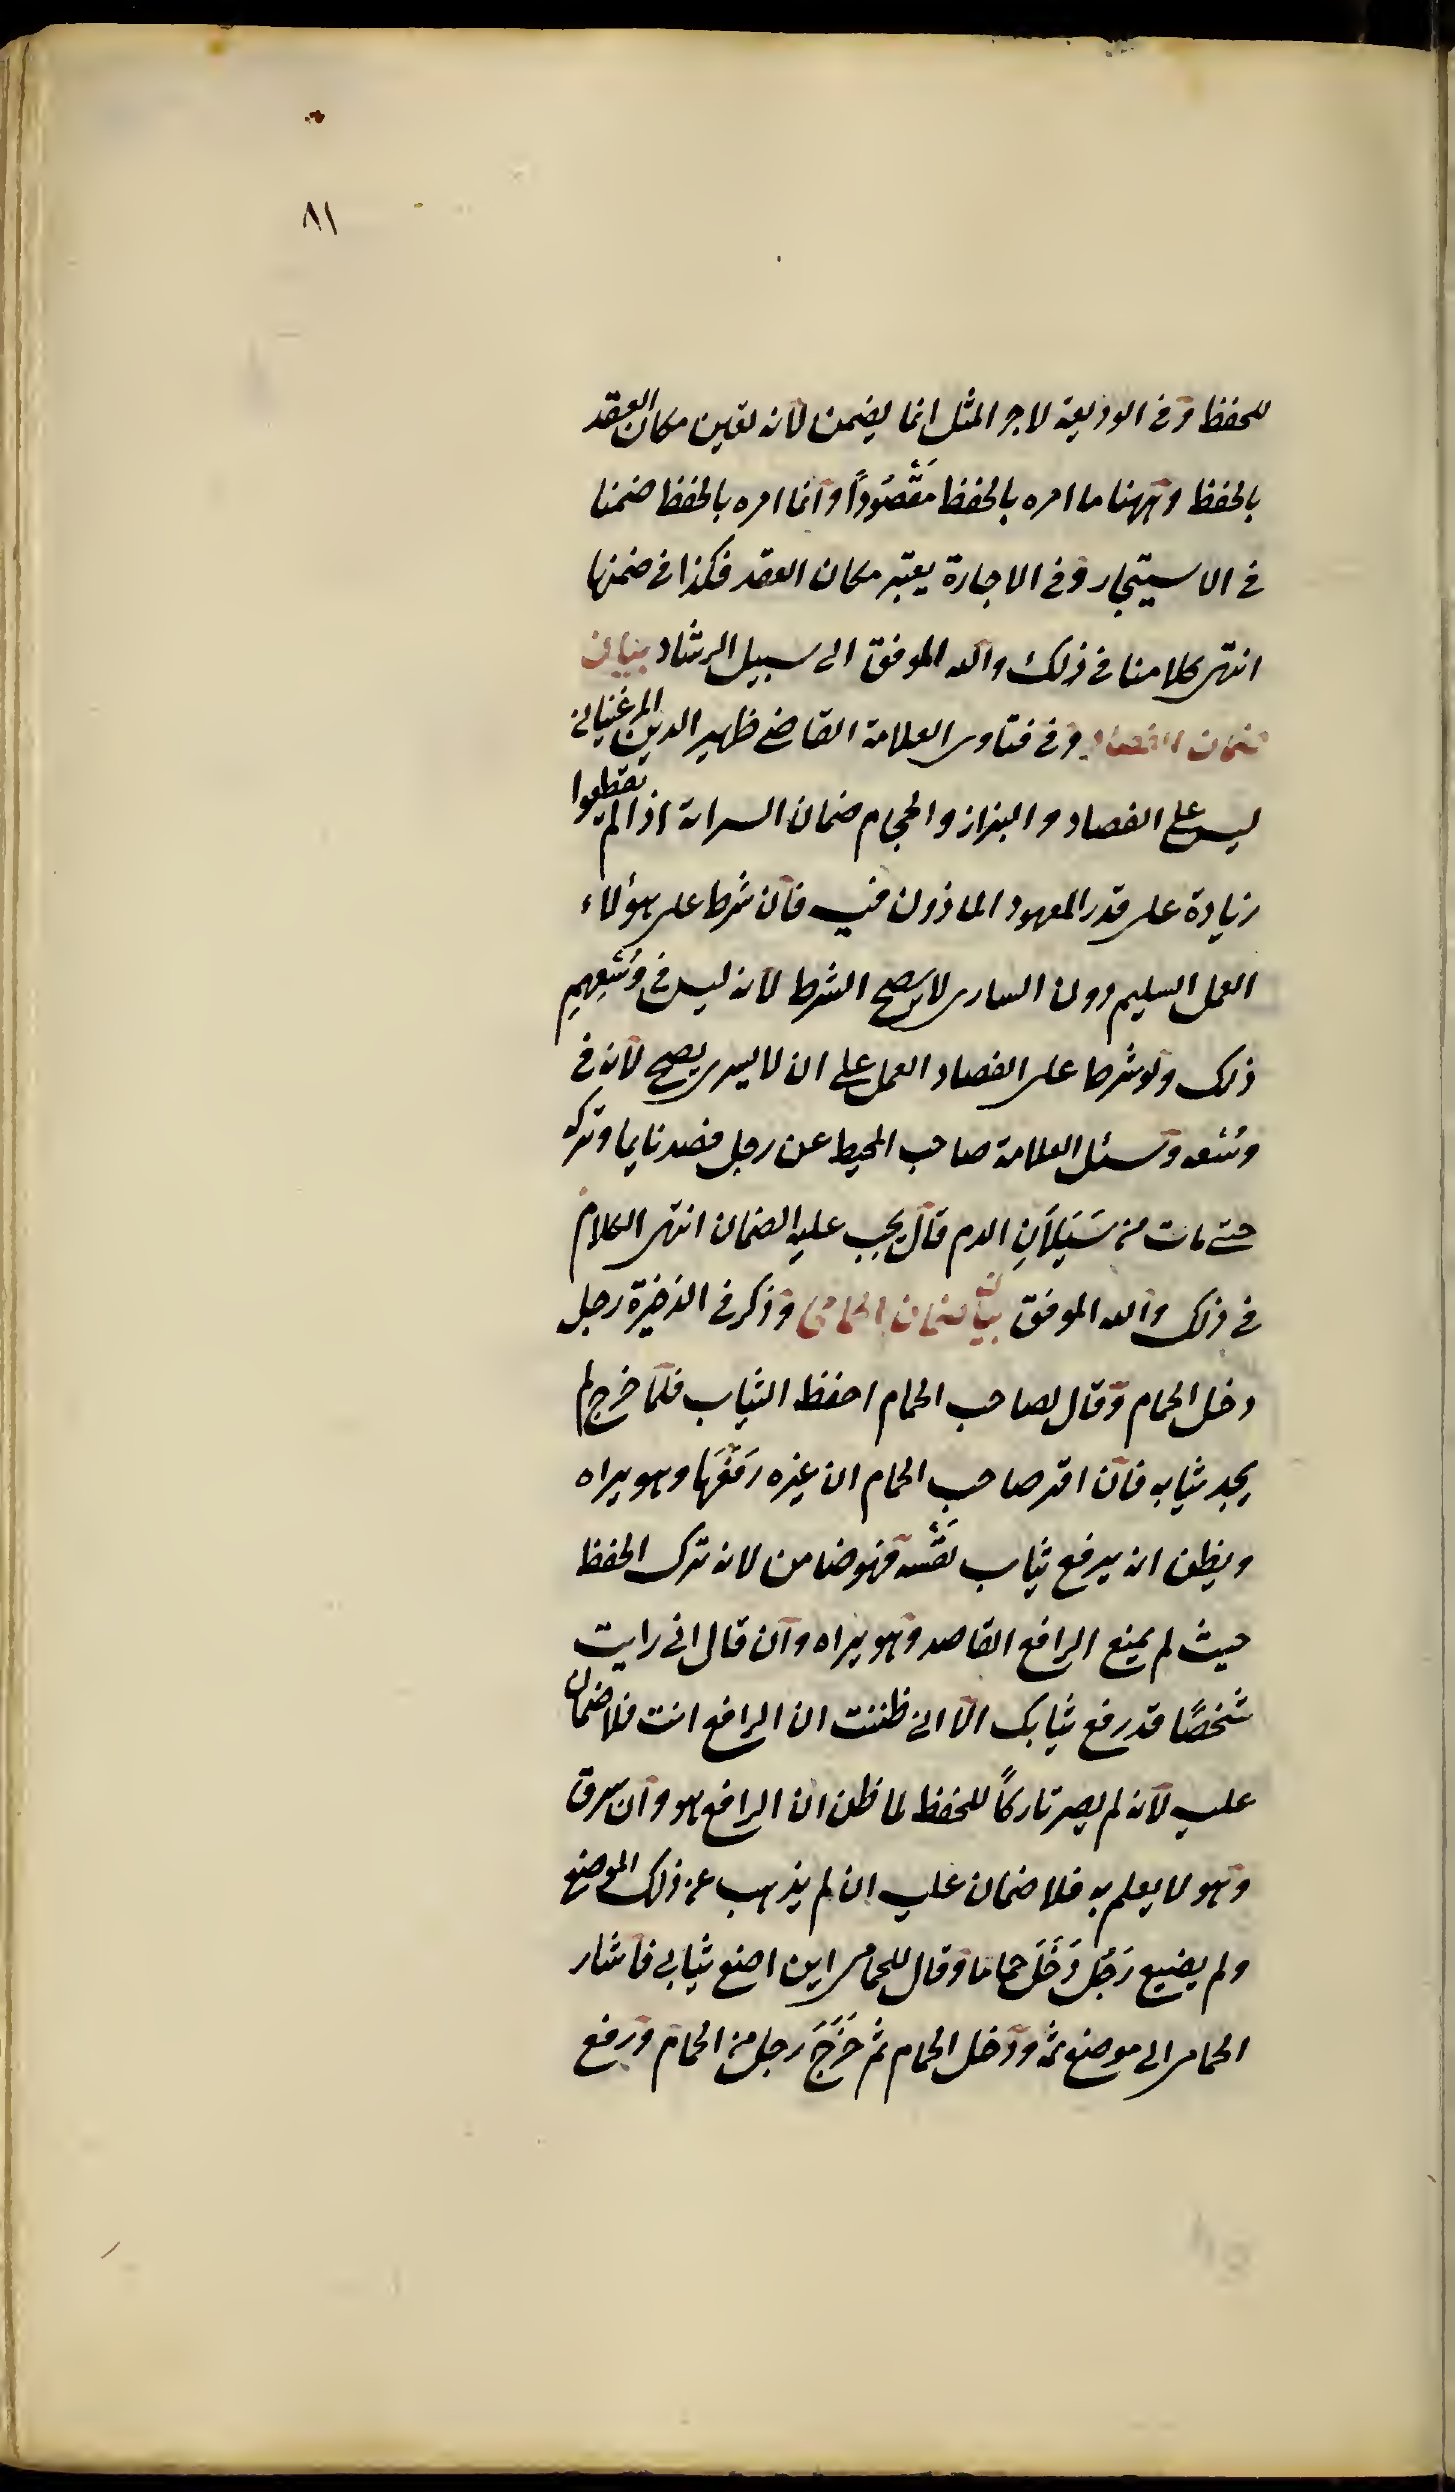 ٨١
للحفظ وفى الوديعة لاجر المثل انما يضمن لانه تعين مكان العقد
بالحفظ وههنا ما امره بالحفظ مَقْصُوداً وانما امره بالحفظ ضمنا
فى الاسيتجار وفى الاجارة يعتبر مكان العقد فكذا فى ضمنها
انتهى كلامنا فى ذلك والله الموفق الى سبيل الرشاد بيان
ضمان الفصاد وفى فتاوى العلامة القاضى ظهير الدين المرغينانى
ليس على الفصاد و البزاز والحجام ضمان السراية اذا لم يقطعوا
زيادة على قدر المعهود الماذون فيه فان شرط على هؤلاء
العمل السليم دون السارى لا يصح الشرط لانه ليس فى وُسْعِهِم
ذلك ولو شرط على الفصاد العمل على ان لا يسرى يصح لانه فى
وُسْعه وسئل العلامة صاحب المحيط عن رجل فصد نايما وتركه
حتى مات من سَيَلَانِ الدم قال يجب عليه الضمان انتهى الكلام
فى ذلك والله الموفق بيان ضمان الحمامى وذكر فى الذخيرة رجل
دخل الحمام وقال لصاحب الحمام احفظ الثياب فلما خرج لم
يجد ثيابه فان اقر صاحب الحمام ان غيره رَفَعَهَا وهو يراه
ويظن انه يرفع ثياب نفسه فهو ضامن لانه ترك الحفظ
حيث لم يمنع الرافع القاصد وهو يراه وان قال انى رايت
شخصًا قد رفع ثيابك الا انى ظننت ان الرافع انت فلا ضمان
عليه لانه لم يصر تاركاً للحفظ لما ظن ان الرافع هو وان سرق
وهو لا يعلم به فلا ضمان عليه ان لم يذهب عن ذلك الموضع
ولم يضيع رَجُل دَخَلَ حماما وقال للحمامى اين اضع ثيابى فاشار
الحمامى الى موضع ثمة ودخل الحمام ثم خَرَجَ رجل من الحمام ورفع